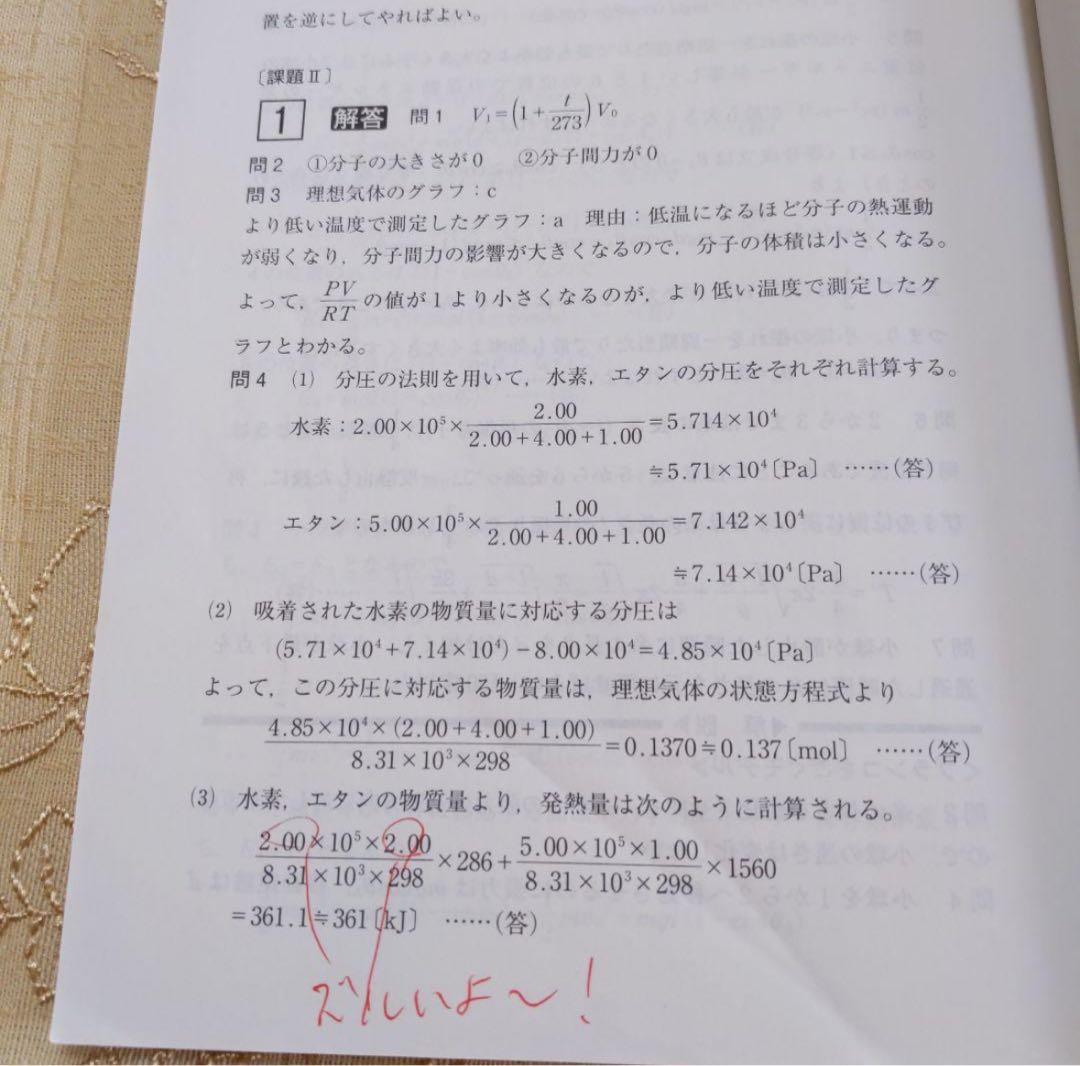 置を逆にしてやればよい。
〔課題Ⅱ〕
1 解答 問1 V₁=(1+t/273)V₀
問2 ①分子の大きさが0 ②分子間力が0
問3 理想気体のグラフ:c
より低い温度で測定したグラフ:a 理由:低温になるほど分子の熱運動
が弱くなり,分子間力の影響が大きくなるので,分子の体積は小さくなる。
よって,PV/RTの値が1より小さくなるのが,より低い温度で測定したグ
ラフとわかる。
問4 (1) 分圧の法則を用いて,水素,エタンの分圧をそれぞれ計算する。
水素:2.00×10⁵×2.00/(2.00+4.00+1.00)=5.714×10⁴
≒5.71×10⁴〔Pa〕 ……(答)
エタン:5.00×10⁵×1.00/(2.00+4.00+1.00)=7.142×10⁴
≒7.14×10⁴〔Pa〕 ……(答)
(2) 吸着された水素の物質量に対応する分圧は
(5.71×10⁴+7.14×10⁴)-8.00×10⁴=4.85×10⁴〔Pa〕
よって,この分圧に対応する物質量は,理想気体の状態方程式より
4.85×10⁴×(2.00+4.00+1.00)/(8.31×10³×298)=0.1370≒0.137〔mol〕 ……(答)
(3) 水素,エタンの物質量より,発熱量は次のように計算される。
2.00×10⁵×2.00/(8.31×10³×298)×286+5.00×10⁵×1.00/(8.31×10³×298)×1560
=361.1≒361〔kJ〕 ……(答)